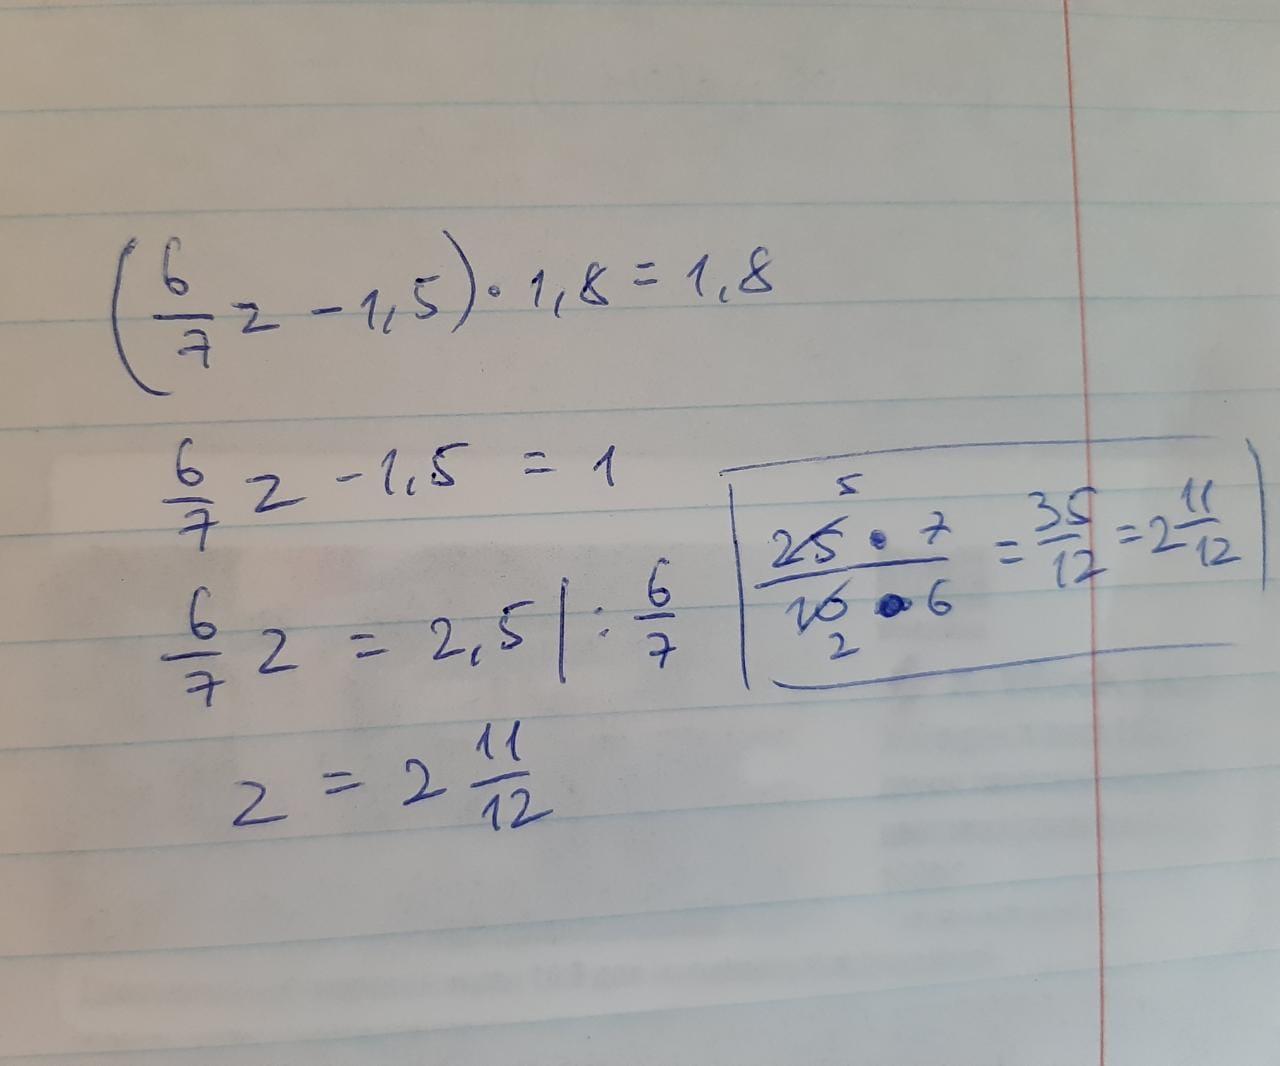 (6/7 z - 1,5) · 1,8 = 1,8
6/7 z - 1,5 = 1
6/7 z = 2,5 | : 6/7
z = 2 11/12
5
25 · 7 / 10 · 6 = 35/12 = 2 11/12
2